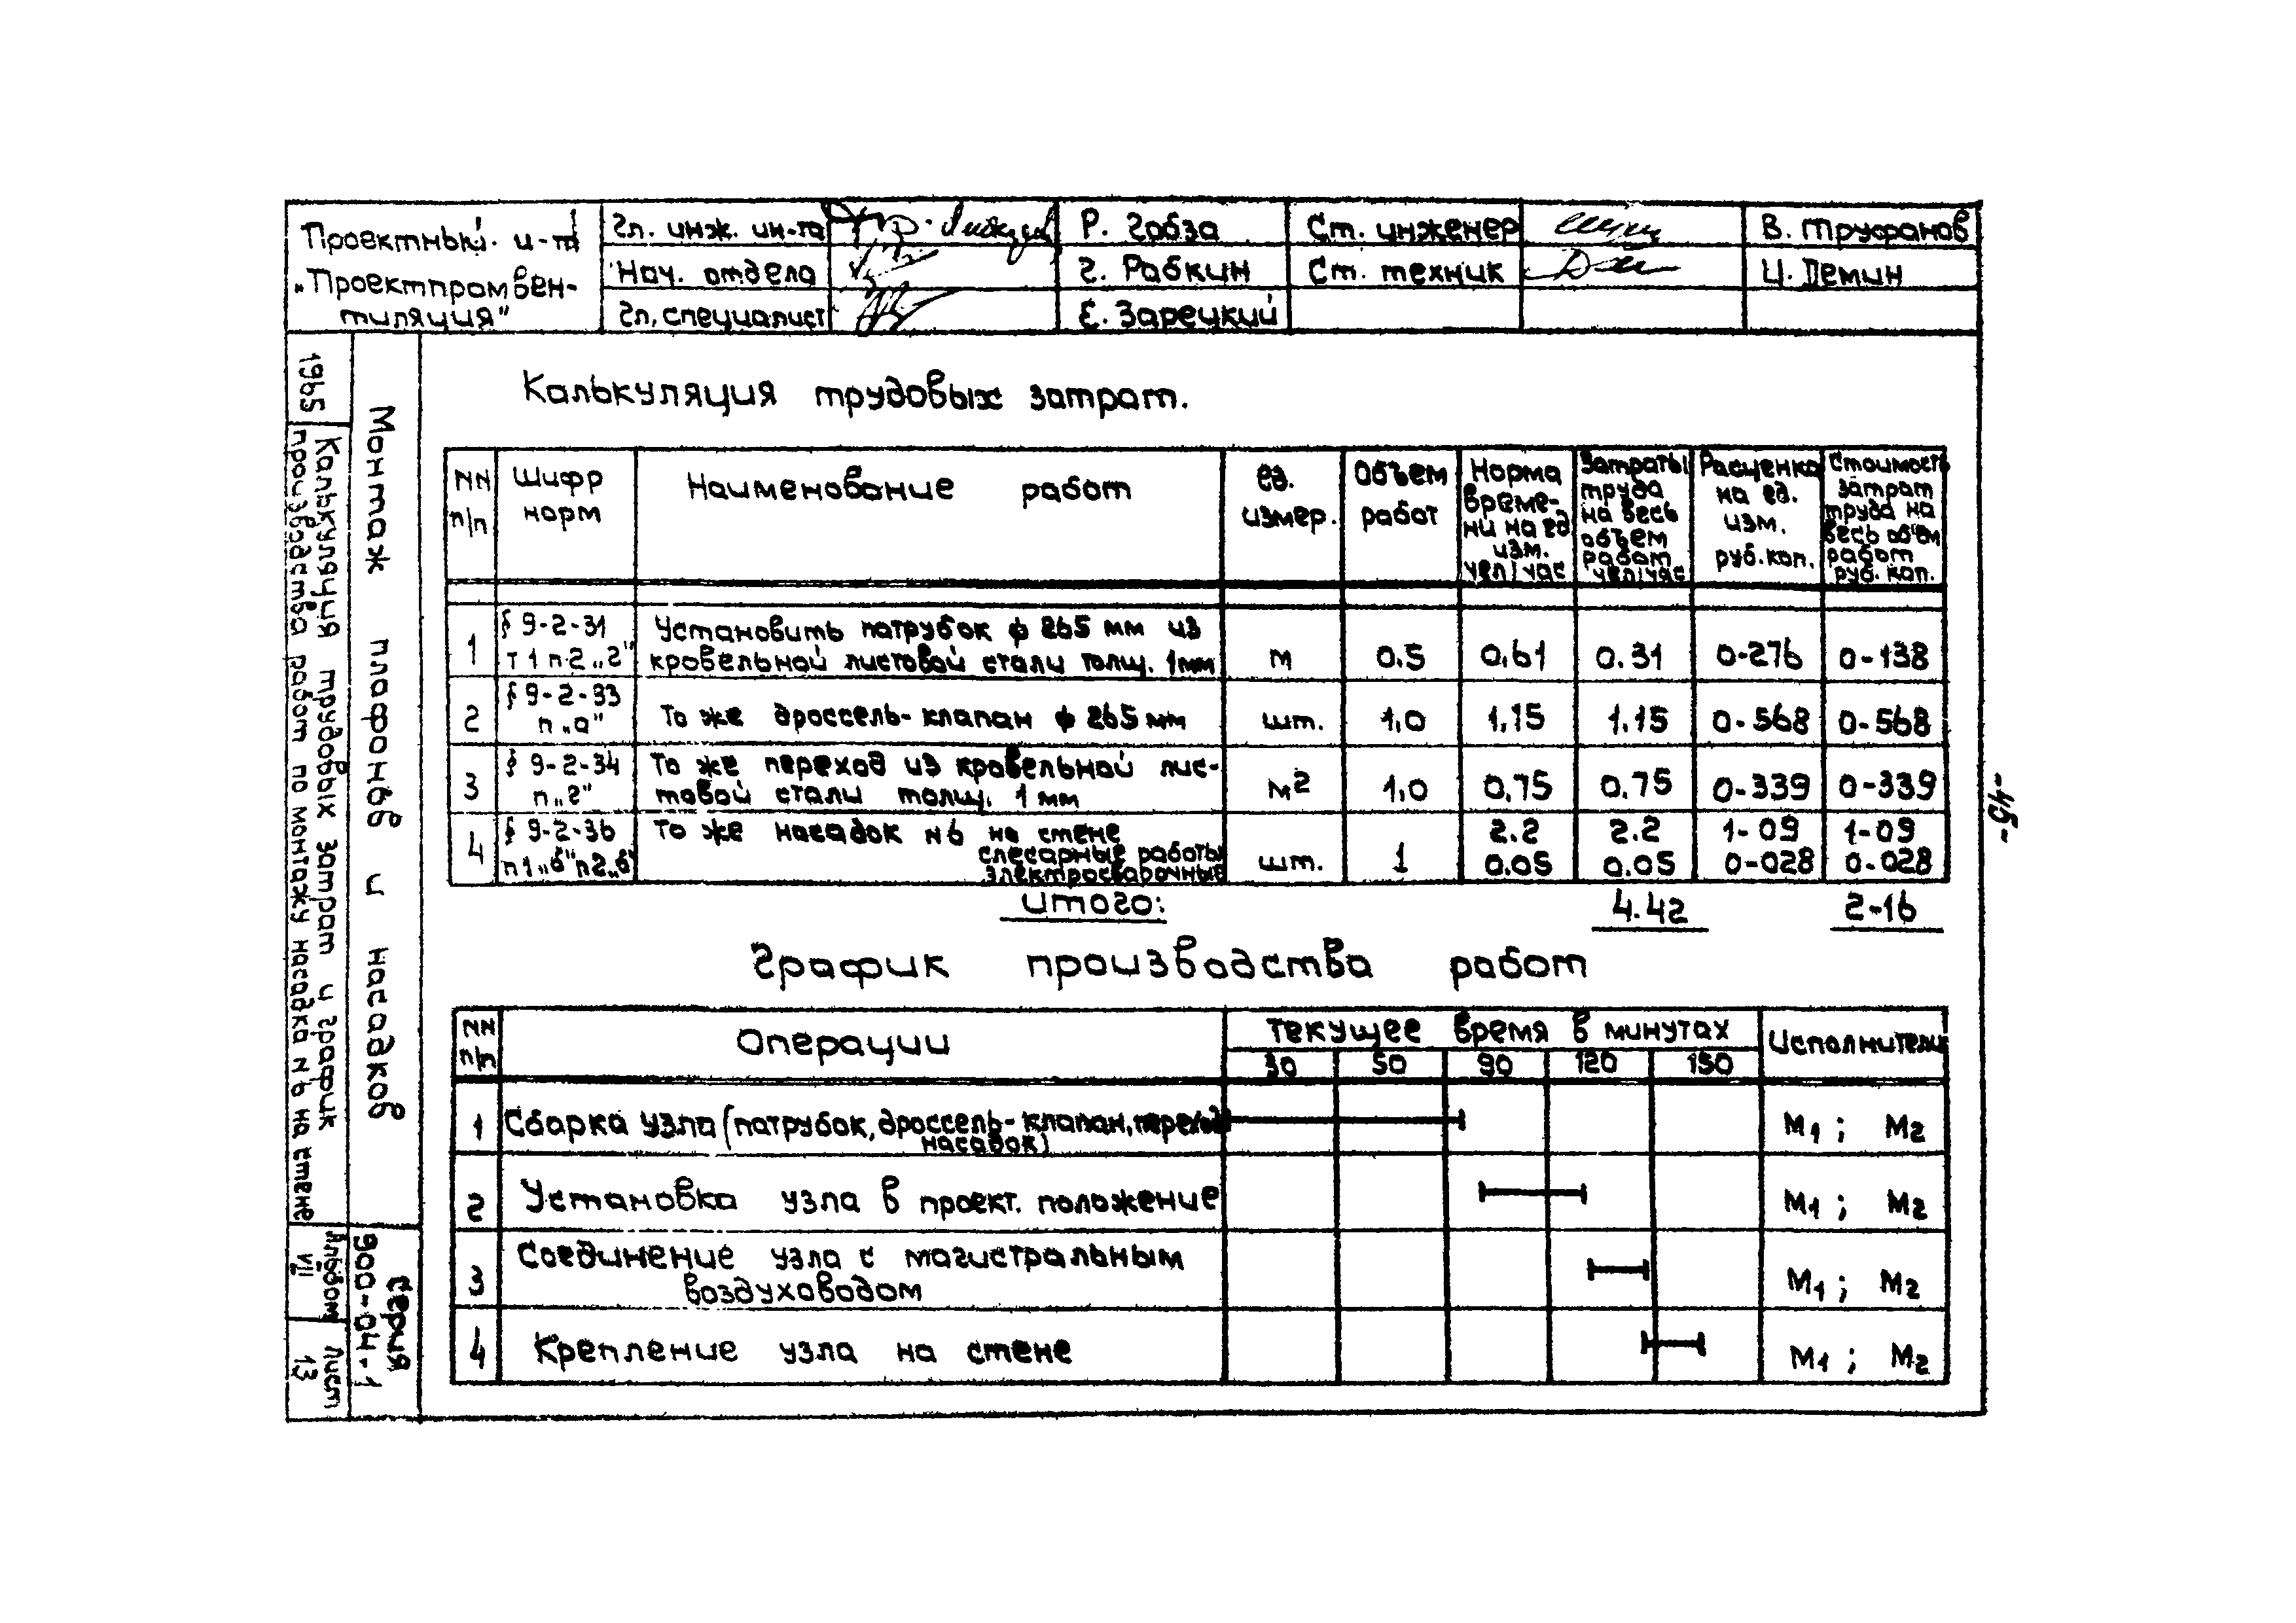 Проектный и-т
„Проектпромвен-
тиляция"
Гл. инж. ин-та
Р. Гобза
Ст. инженер
В. Труфанов
Нач. отдела
Г. Рабкин
Ст. техник
Ц. Демин
Гл. специалист
Е. Зарецкий
1965
Калькуляция трудовых затрат и график
производства работ по монтажу насадка N6 на стене
Монтаж плафонов и насадков
Альбом
VII
Лист
13
Серия
900-04-1
Калькуляция трудовых затрат.
NN п/п
Шифр норм
Наименование работ
ед. измер.
Объем работ
Норма време- ни на ед изм. чел/час
Затраты труда на весь объем работ чел/час
Расценка на ед. изм. руб.коп.
Стоимость затрат труда на весь объем работ руб. коп.
1 § 9-2-31 т1 п.2 „г" Установить патрубок ф 265 мм из
кровельной листовой стали толщ. 1мм м 0.5 0.61 0.31 0-276 0-138
2 § 9-2-33 п „а" То же дроссель-клапан ф 265 мм шт. 1,0 1,15 1.15 0-568 0-568
3 § 9-2-34 п „г" То же переход из кровельной лис-
товой стали толщ. 1 мм м2 1,0 0.75 0.75 0-339 0-339
4 § 9-2-36 п1 „б" п2 „б" То же насадок N6 на стене 2.2 2.2 1-09 1-09
слесарные работы
электросварочные шт. 1 0.05 0.05 0-028 0-028
Итого: 4.42 2-16
График производства работ
NN п/п
Операции
Текущее время в минутах
30 50 90 120 150
Исполнители
1 Сборка узла (патрубок, дроссель-клапан, переход
насадок) М1; М2
2 Установка узла в проект. положение М1; М2
3 Соединение узла с магистральным
воздуховодом М1; М2
4 Крепление узла на стене М1; М2
-45-